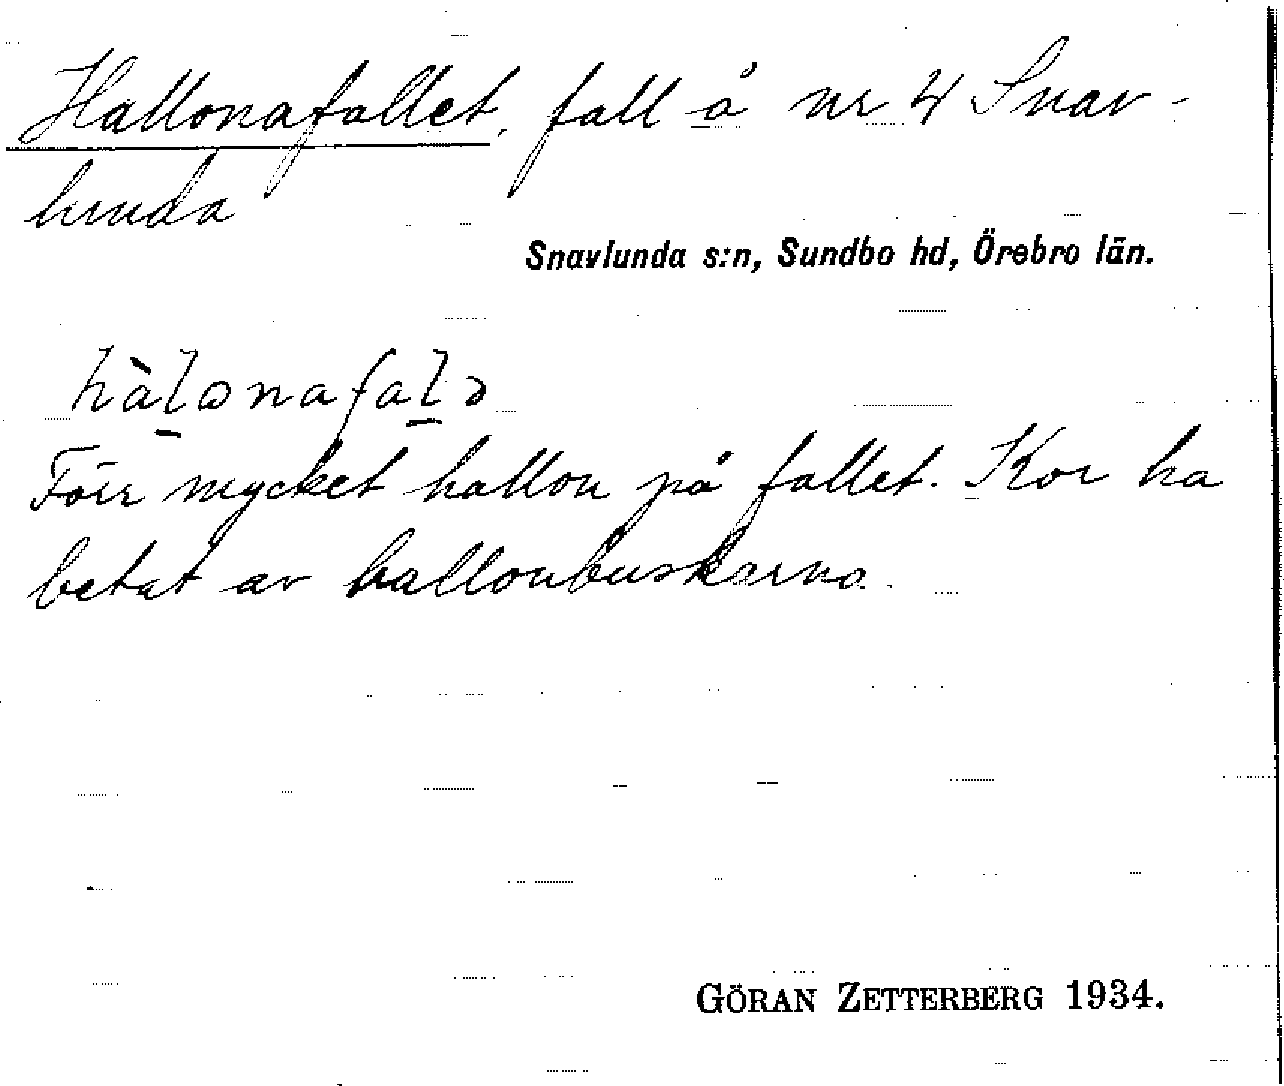 Hallonafallet, fall å nr 4 Snav-
lunda
Snavlunda s:n, Sundbo hd, Örebro län.
hàl̠ɷnafal̠ə
Förr mycket hallon på fallet. Kor ha
betat av hallonbuskarna.
GÖRAN ZETTERBERG 1934.